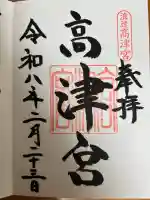 奉拝
浪速高津宮
高津宮
令和八年二月二十三日